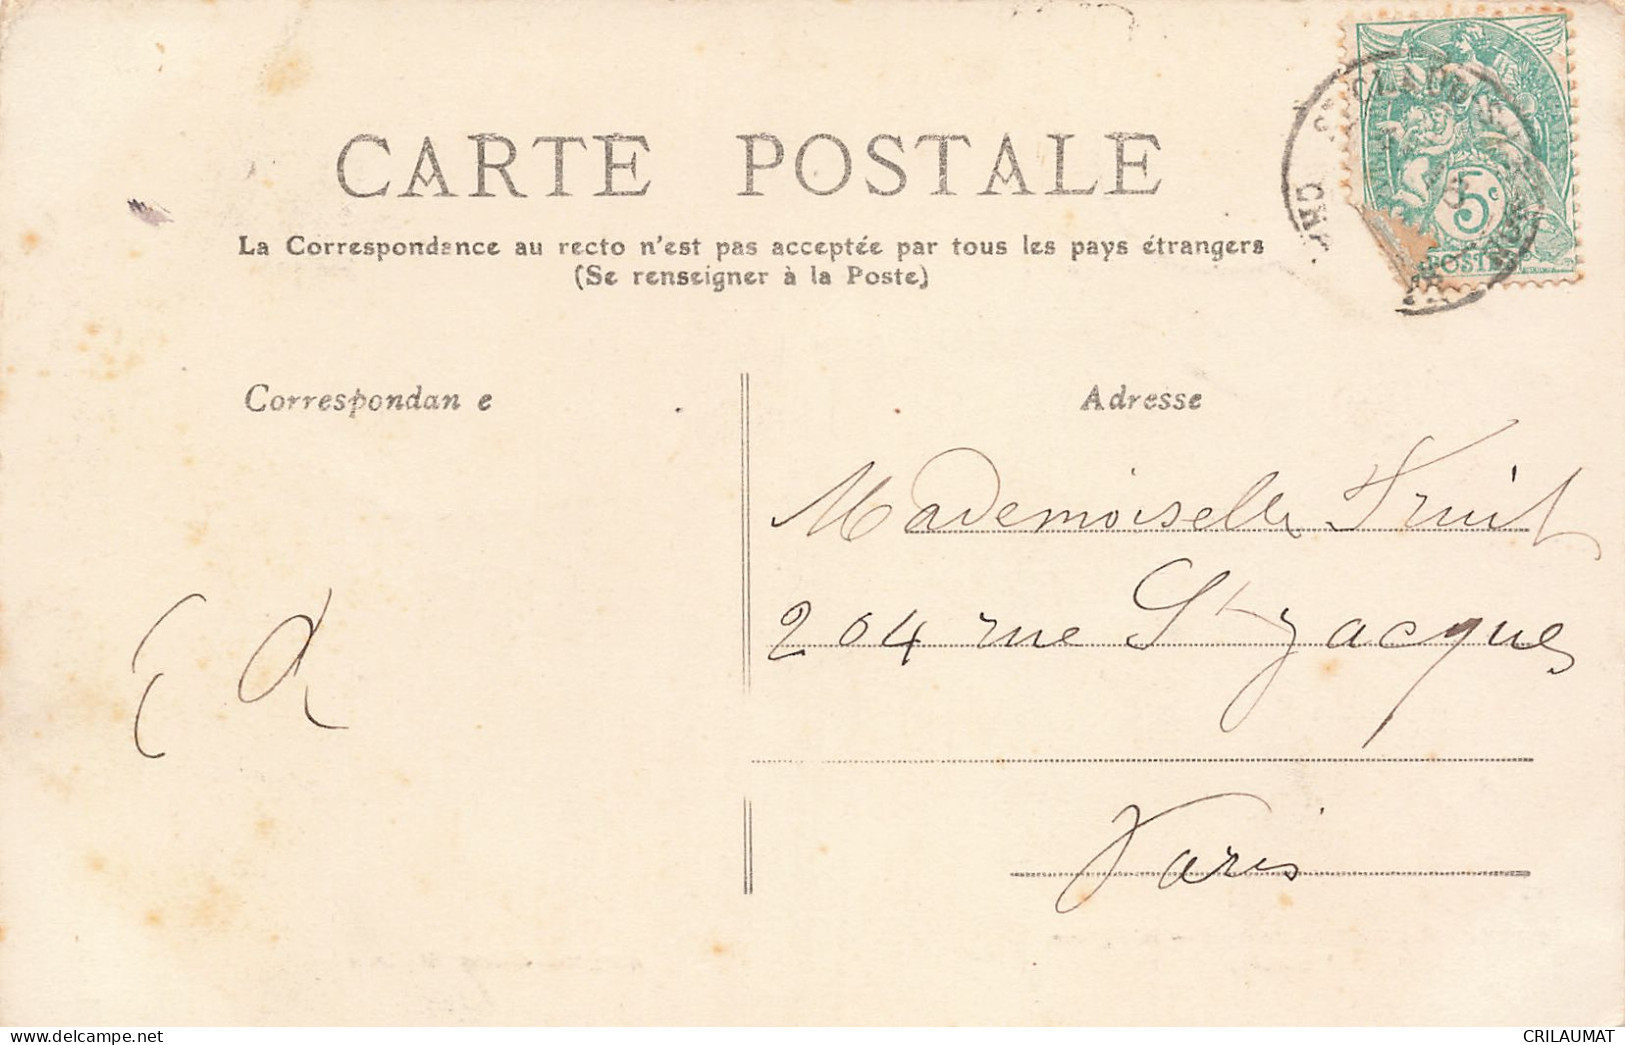 CARTE POSTALE
La Correspondance au recto n'est pas acceptée par tous les pays étrangers
(Se renseigner à la Poste)
5c
POSTES
Correspondan e
Adresse
Mademoiselle Fruit
204 rue St Jacques
Paris
www.delcampe.net
CRILAUMAT